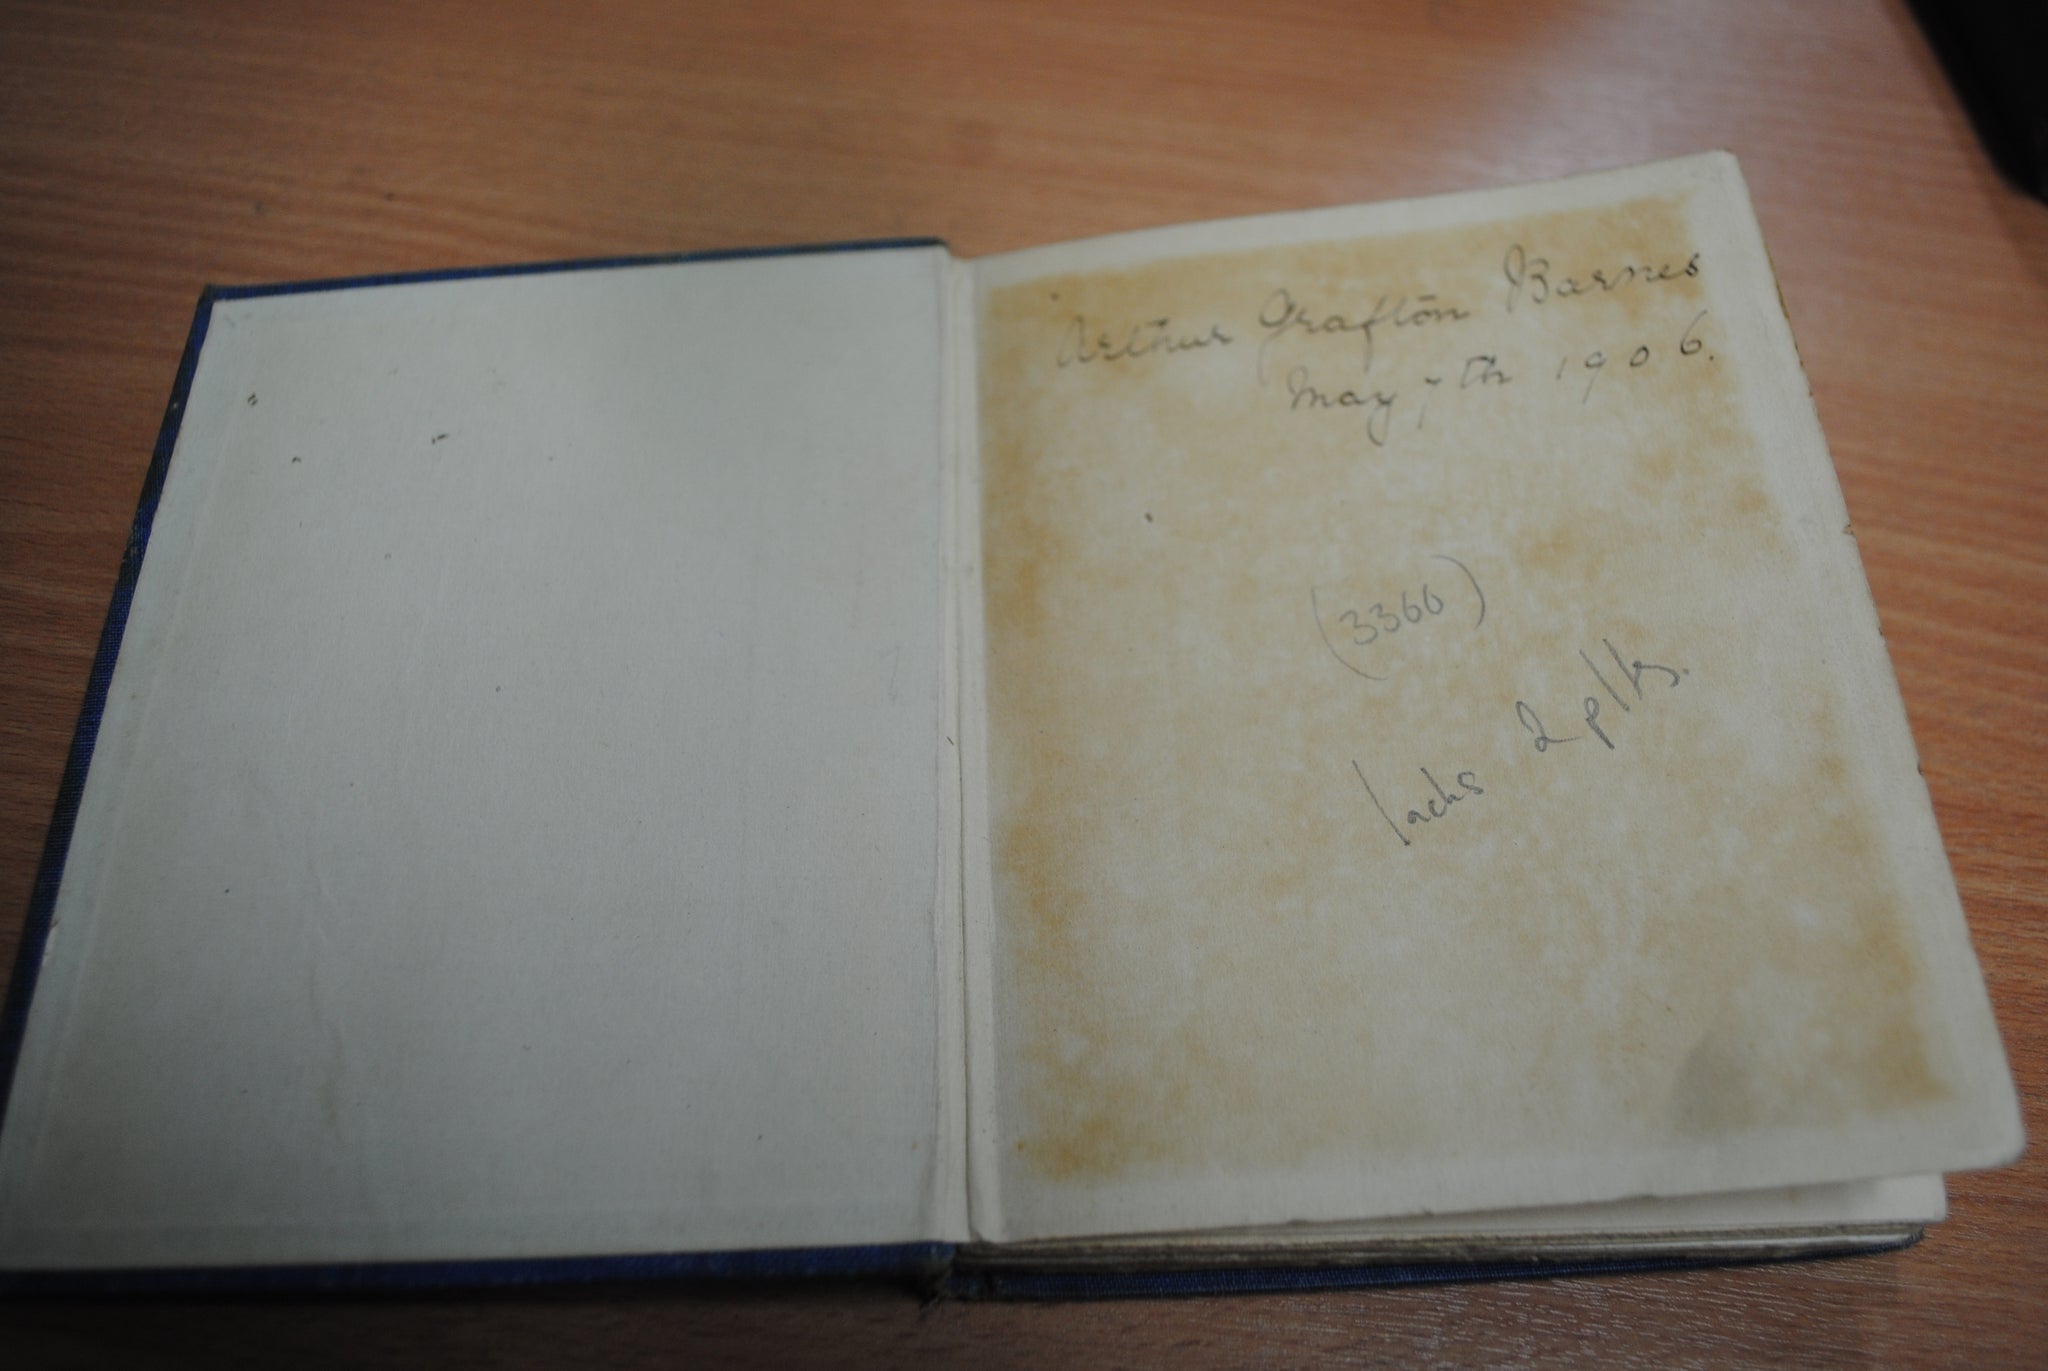 Arthur Grafton Barnes
May 7th 1906.
(3366)
lacks 2 plts.